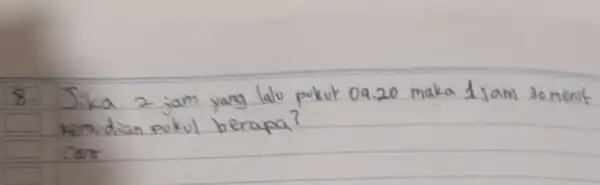 8. Jika 2 jam yang lalu pukul 09.20 maka 1 jam 30 menit
kemudian pukul berapa?
Cara